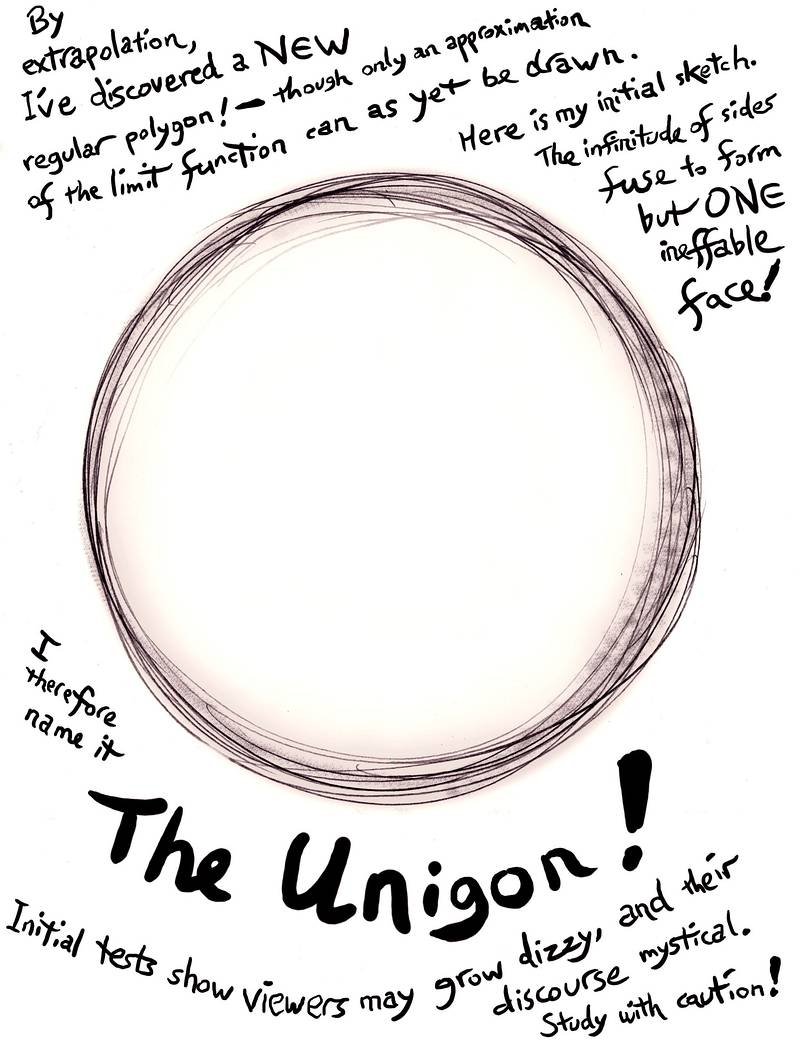 By
extrapolation,
I've discovered a NEW
regular polygon! — though only an approximation
of the limit function can as yet be drawn.
Here is my initial sketch.
The infinitude of sides
fuse to form
but ONE
ineffable
face!
I
therefore
name it
The Unigon!
Initial tests show viewers may grow dizzy, and their
discourse mystical.
Study with caution!